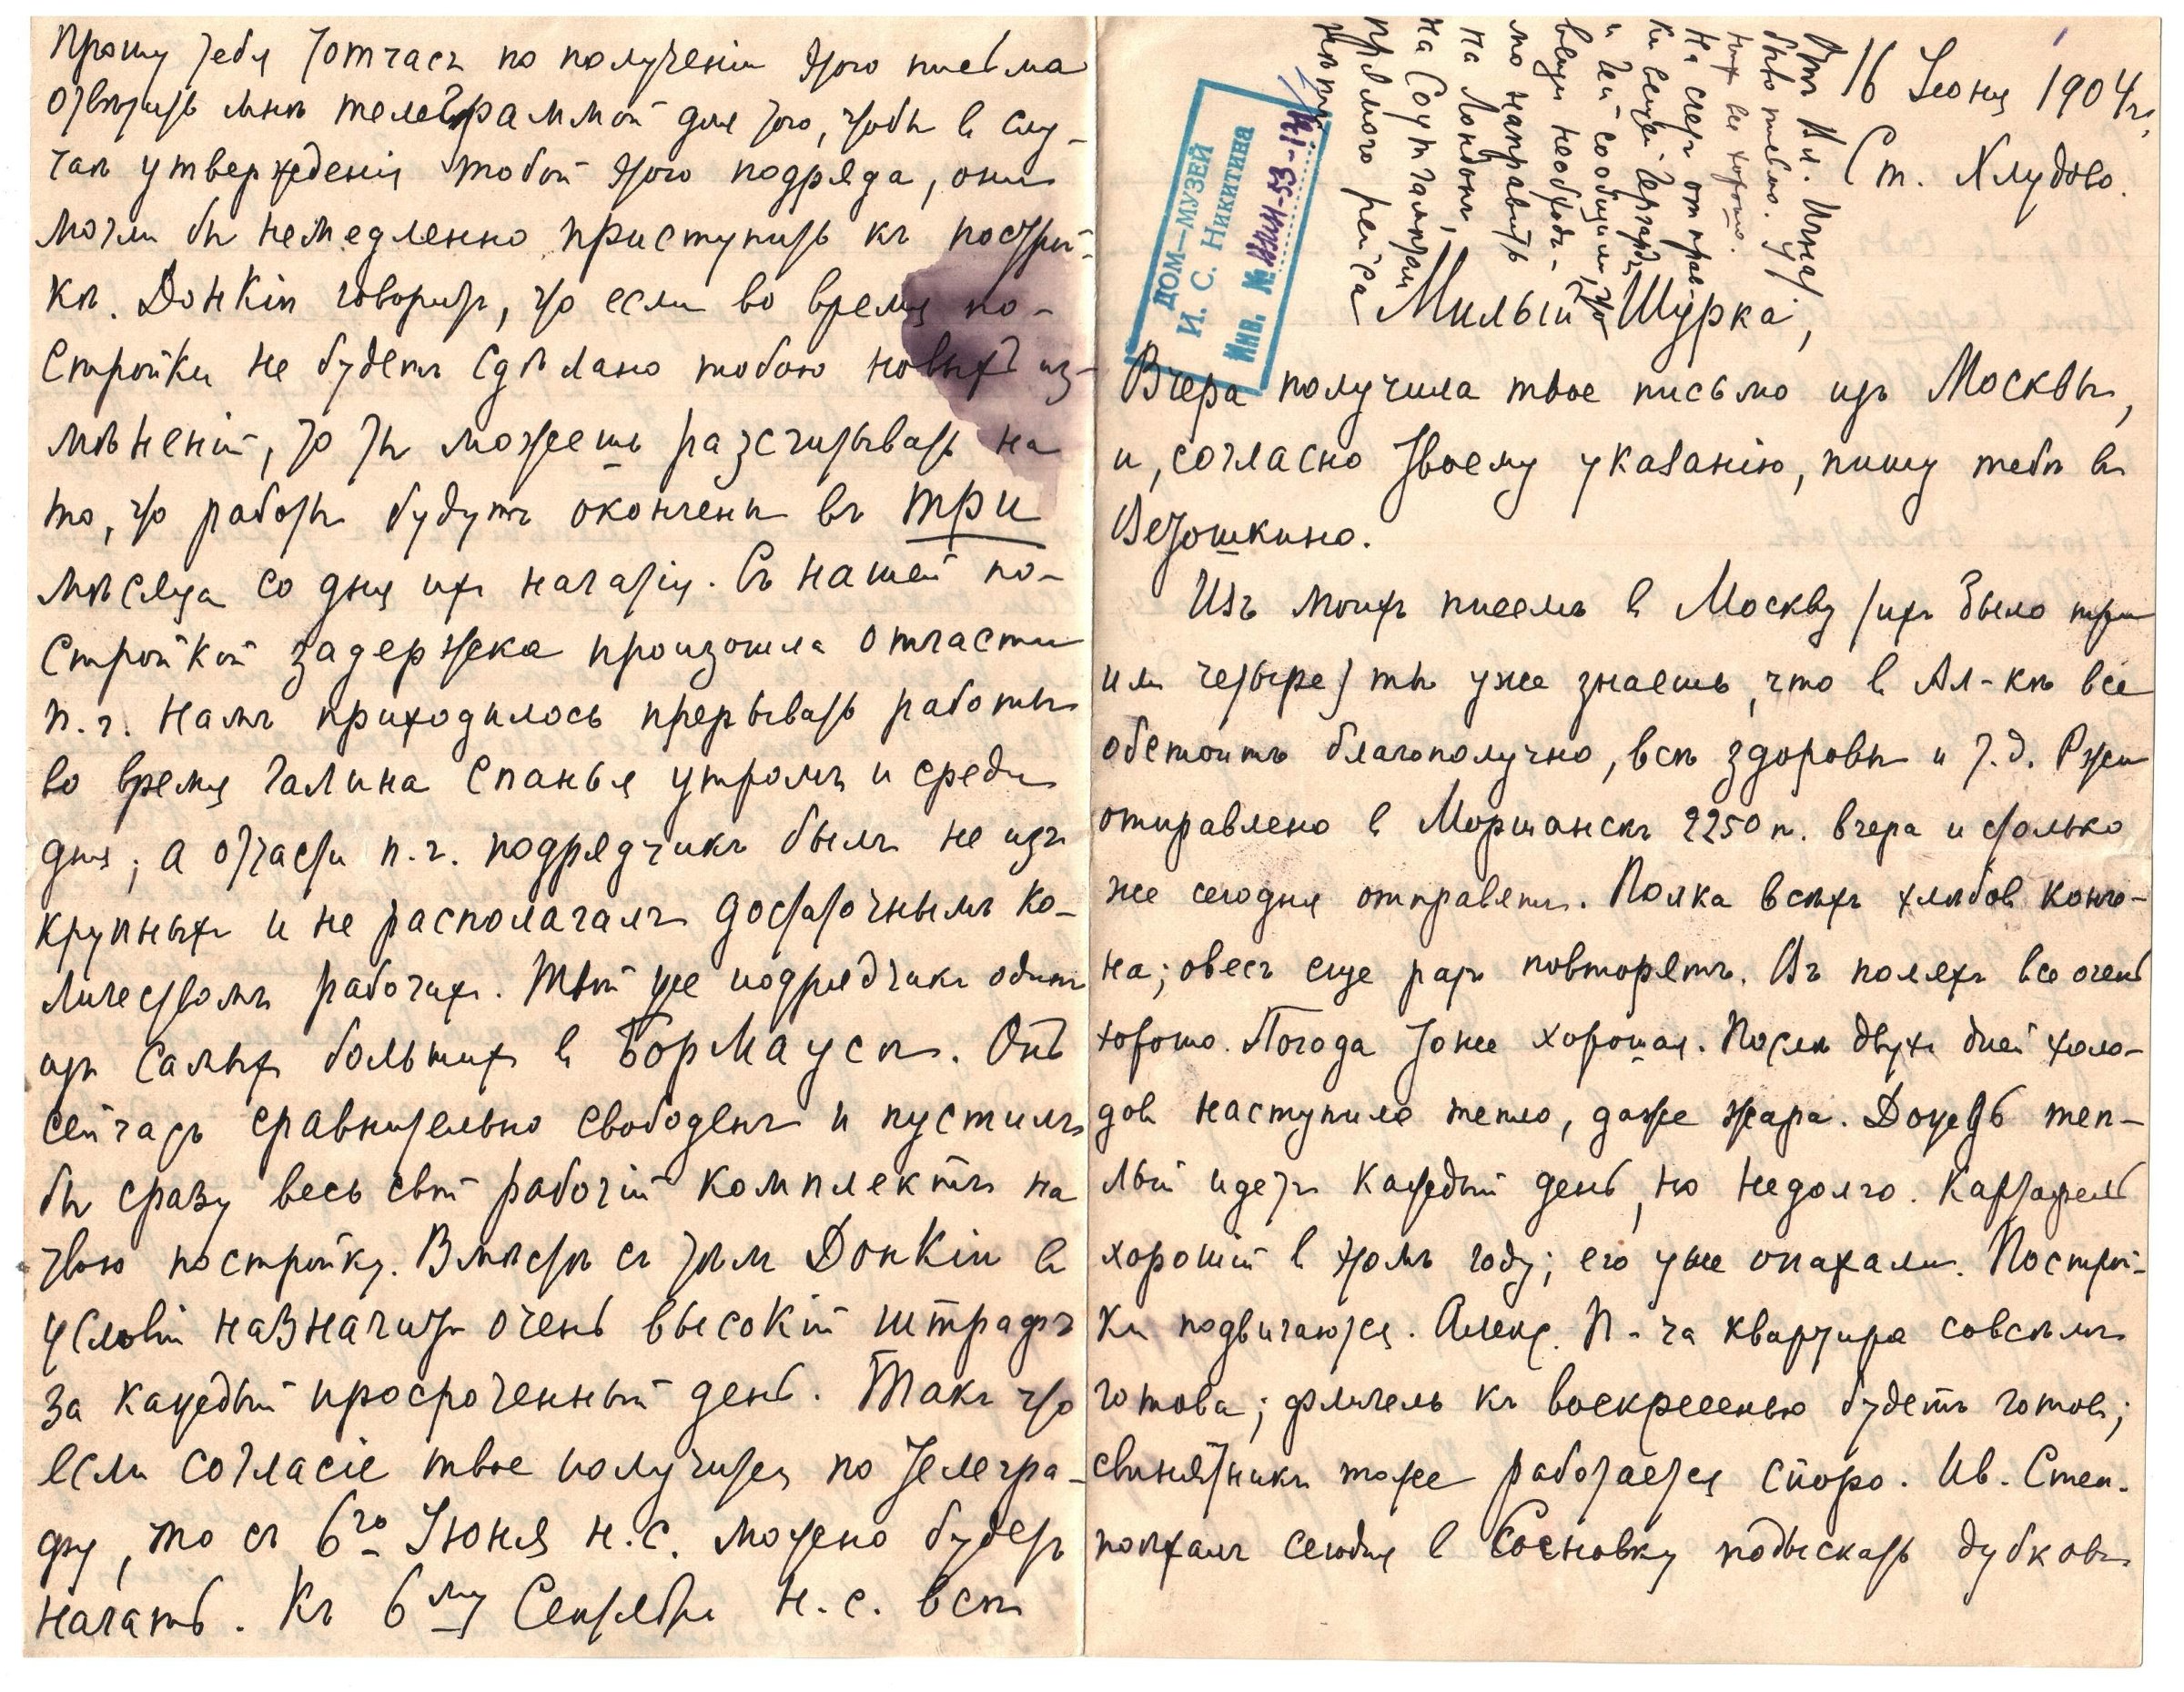 16 Іюня 1904 г.
Ст. Хлудово.
Отъ Ал. Игнат.
было письмо. У
нихъ все хорошо.
На счетъ отправ-
ки вещей Герхардъ
и Гей сообщили, что
вещи необходи-
мо направить
на Лондонъ,
на Соутгамптон
прямого рейса
нѣтъ.
ДОМ—МУЗЕЙ
И. С. Никитина
Инв. №
Милый Шурка,
Вчера получила твое письмо изъ Москвы,
и, согласно твоему указанію, пишу тебѣ въ
Ветошкино.
Изъ моихъ писемъ в Москву /ихъ было три
или четыре/ ты уже знаешь, что в Ал-кѣ все
обстоитъ благополучно, всѣ здоровы и т.д. Ржи
отправлено в Моршанскъ 2250 п. вчера и столько
же сегодня отправятъ. Полка всѣхъ хлѣбов конче-
на; овесъ еще разъ повторятъ. Въ поляхъ все очень
хорошо. Погода тоже хорошая. Послѣ двухъ дней холо-
дов наступило тепло, даже жара. Дождь теп-
лый идетъ каждый день, но недолго. Картофель
хорошій в этомъ году; его уже опахали. Построй-
ки подвигаются. Алекс. П-ча квартира совсѣмъ
готова; флигель къ воскресенью будетъ готов;
свинятникъ тоже работается споро. Ив. Степ.
поѣхалъ сегодня в Сосновку подыскать дубковъ
Прошу тебя тотчасъ по полученіи этого письма
отвѣтить мнѣ телеграммой для того, чтобы в слу-
чаѣ утвержденія тобой этого подряда, они
могли бы немедленно приступить къ построй-
кѣ. Донкін говоритъ, что если во время по-
стройки не будетъ сдѣлано тобою новыхъ из-
мѣненій, то ты можешь разсчитывать на
то, что работы будутъ окончены въ три
мѣсяца со дня ихъ начатія. Съ нашей по-
стройкой задержка произошла отчасти
п.ч. намъ приходилось прерывать работы
во время Галина спанья утромъ и среди
дня; а отчасти п.ч. подрядчикъ былъ не изъ
крупныхъ и не располагалъ достаточнымъ ко-
личествомъ рабочихъ. Твой же подрядчикъ одинъ
изъ самыхъ большихъ в Бормаусѣ. Онъ
сейчасъ сравнительно свободенъ и пустилъ
бы сразу весь свой рабочій комплектъ на
твою постройку. Вмѣстѣ съ тѣмъ Донкін в
условіи назначитъ очень высокій штрафъ
за каждый просроченный день. Такъ что
если согласіе твое получится по телегра-
фу, то съ 6го Іюня н.с. можно будетъ
начать. Къ 6му Сентября н.с. всѣ